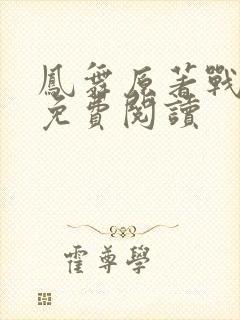 鳳舞原著戰
免費閱讀
霍尊學